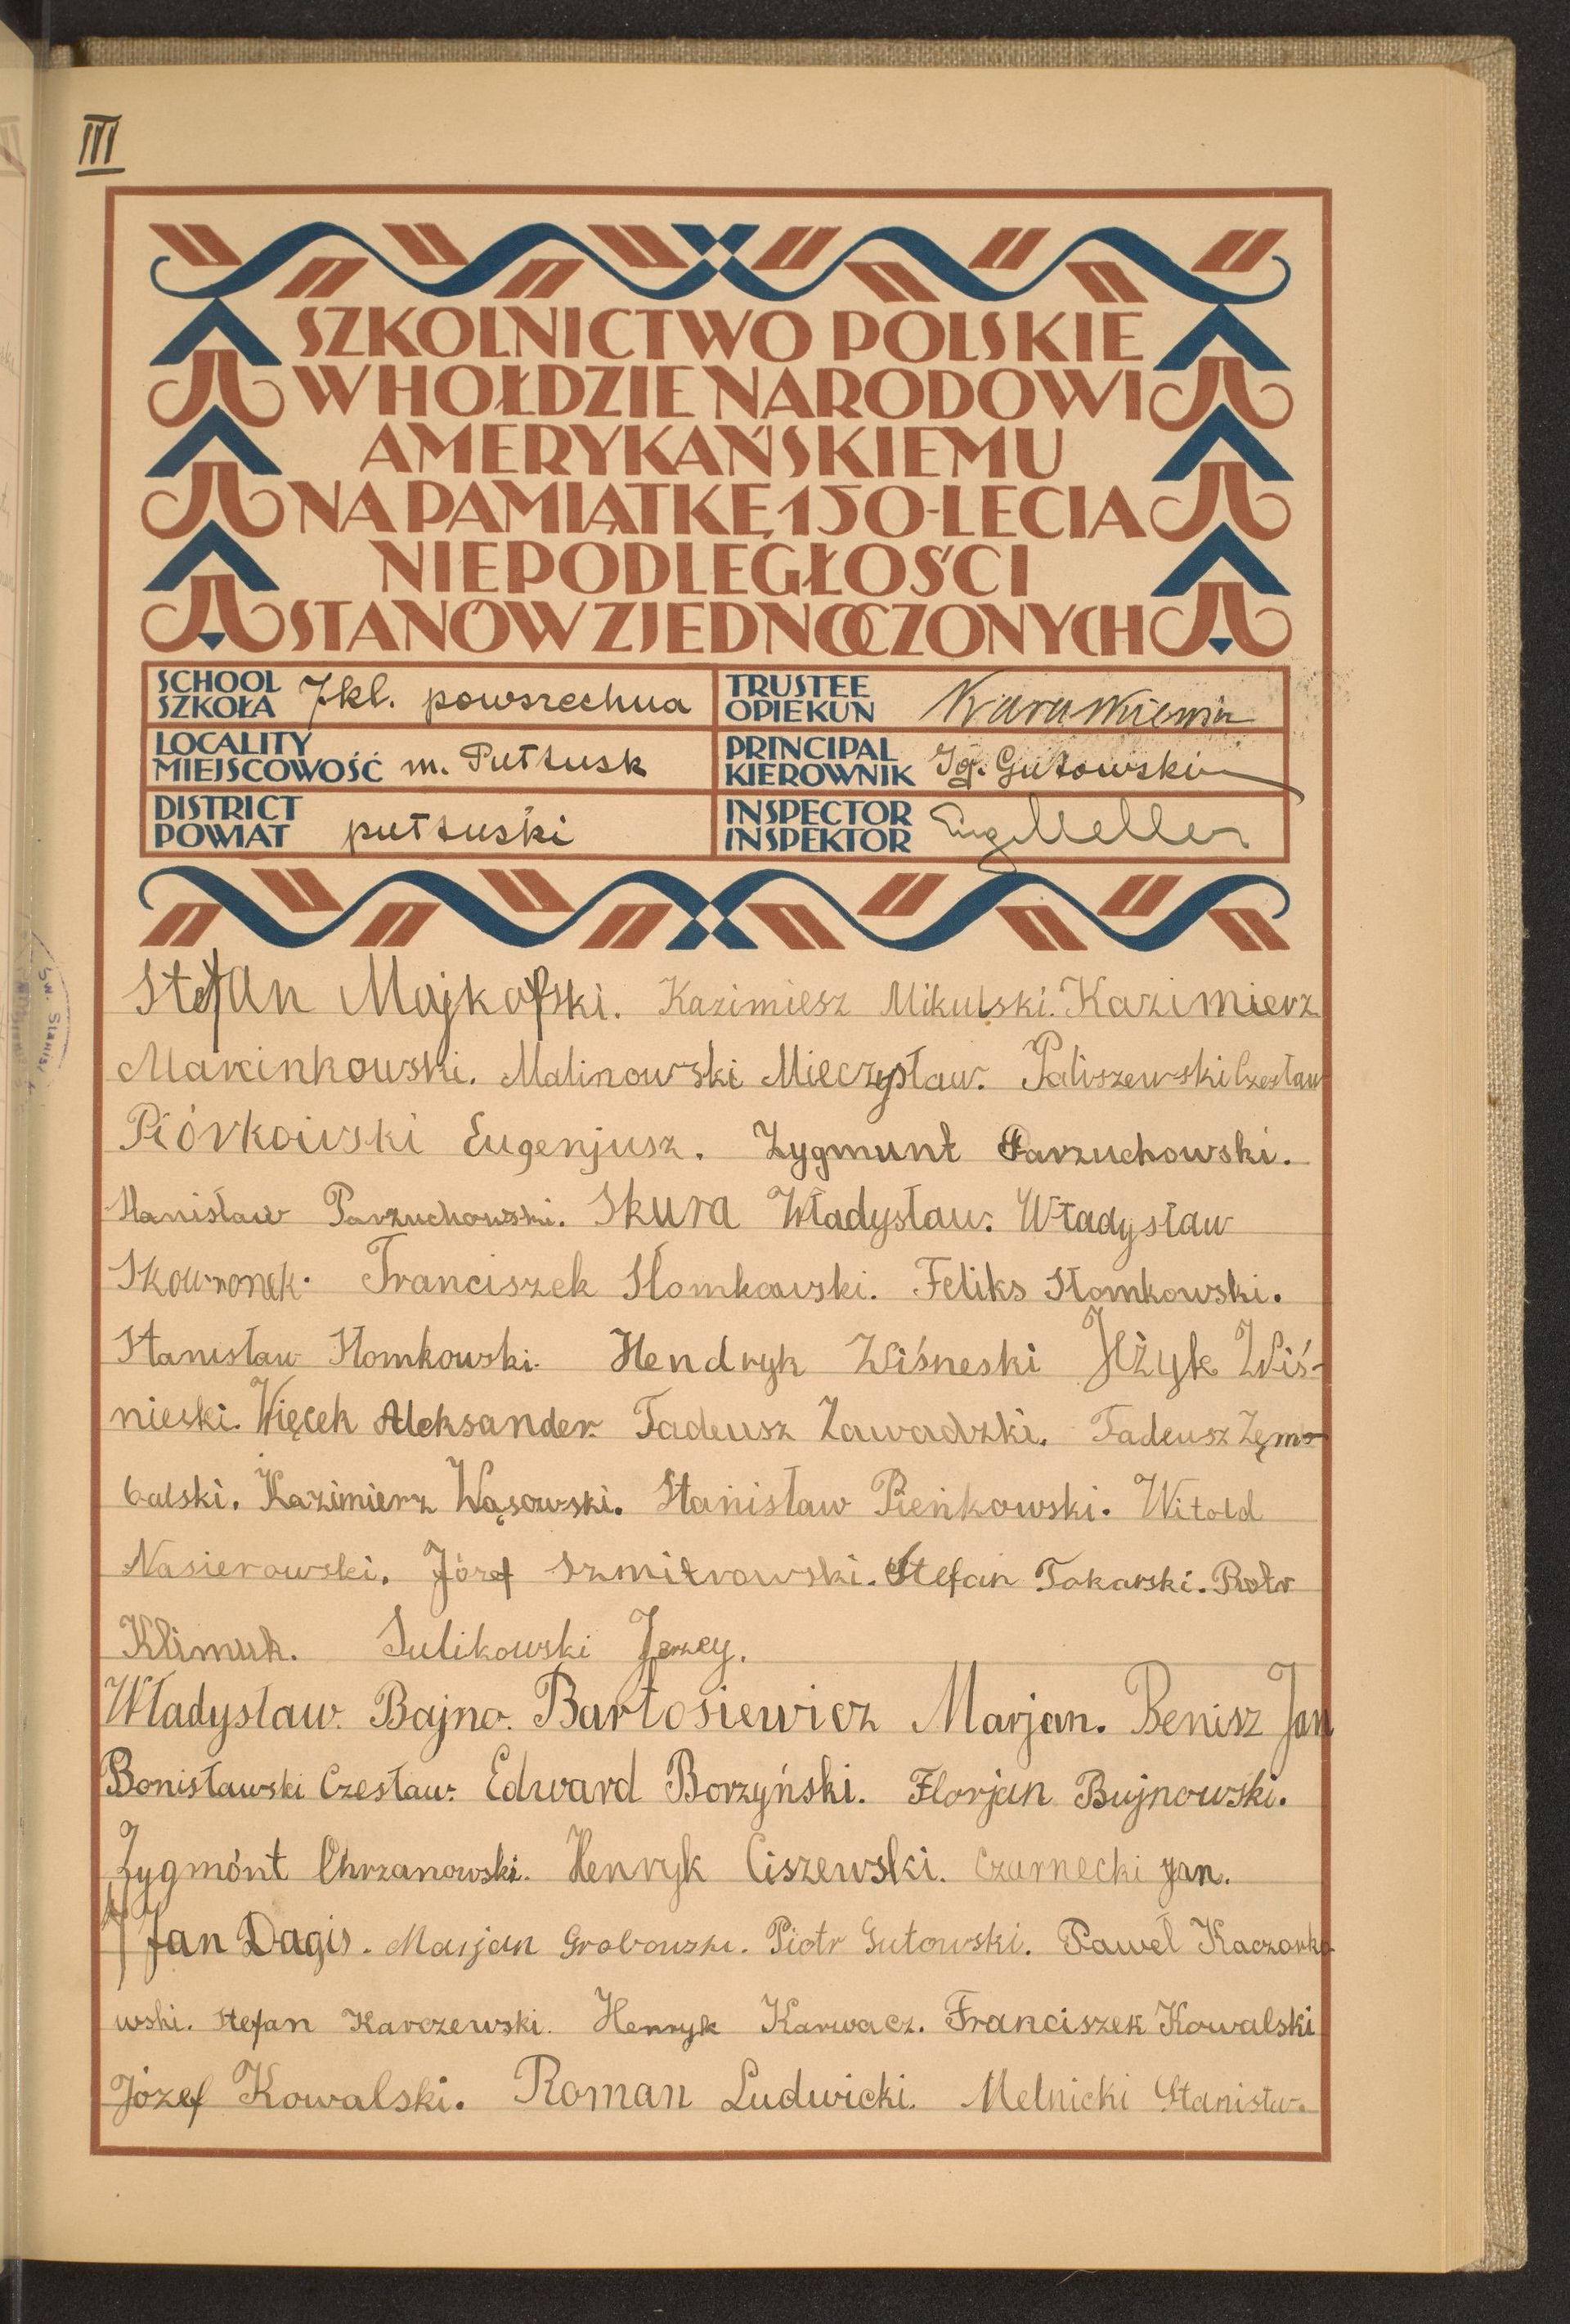 III
SZKOLNICTWO POLSKIE
W HOŁDZIE NARODOWI
AMERYKAŃSKIEMU
NA PAMIĄTKĘ 150-LECIA
NIEPODLEGŁOŚCI
STANÓW ZJEDNOCZONYCH
SCHOOL
SZKOŁA 7kl. powszechna
TRUSTEE
OPIEKUN
LOCALITY
MIEJSCOWOŚĆ m. Pułtusk
PRINCIPAL
KIEROWNIK Ig. Gutowski
DISTRICT
POWIAT pułtuski
INSPECTOR
INSPEKTOR
Stefan Majkofski. Kazimiesz Mikulski. Kazimierz
Marcinkowski. Malinowski Mieczysław. Paliszewski Czesław
Piórkowski Eugenjusz. Zygmunt Parzuchowski.
Stanisław Parzuchowski. Skura Władysław. Władysław
Skowronek. Franciszek Słomkowski. Feliks Słomkowski.
Stanisław Słomkowski. Hendryk Wiśneski Jeżyk Wiś-
nieski. Więcek Aleksander. Tadeusz Zawadzki. Tadeusz Zęm-
balski. Kazimierz Wąsowski. Stanisław Pieńkowski. Witold
Nasierowski. Józef Szmitrowski. Stefan Tokarski. Piotr
Klimuk. Sulikowski Jerzey.
Władysław. Bajno. Bartosiewicz Marjan. Benisz Jan
Bonisławski Czesław. Edward Borzyński. Florjan Bujnowski.
Zygmónt Chrzanowski. Henryk Ciszewski. Czarnecki Jan.
Jan Dagis. Marjan Grabowski. Piotr Gutowski. Paweł Kaczorko
wski. Stefan Karczewski. Henryk Karwacz. Franciszek Kowalski
Józef Kowalski. Roman Ludwicki. Melnicki Stanisłw.